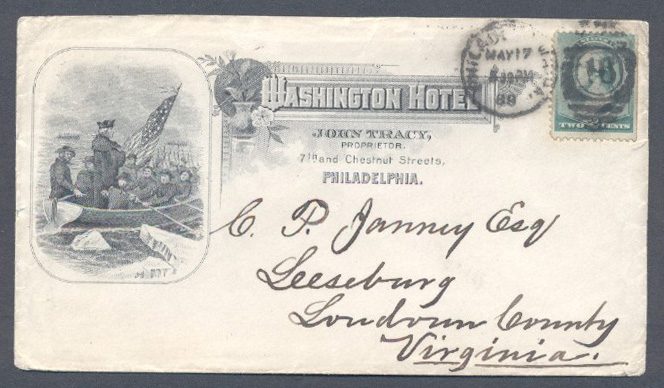 WASHINGTON HOTEL
JOHN TRACY,
PROPRIETOR.
7th and Chestnut Streets,
PHILADELPHIA.
MAY 17
89
18
TWO CENTS
C. P. Janney Esq
Leesburg
Loudoun County
Virginia.